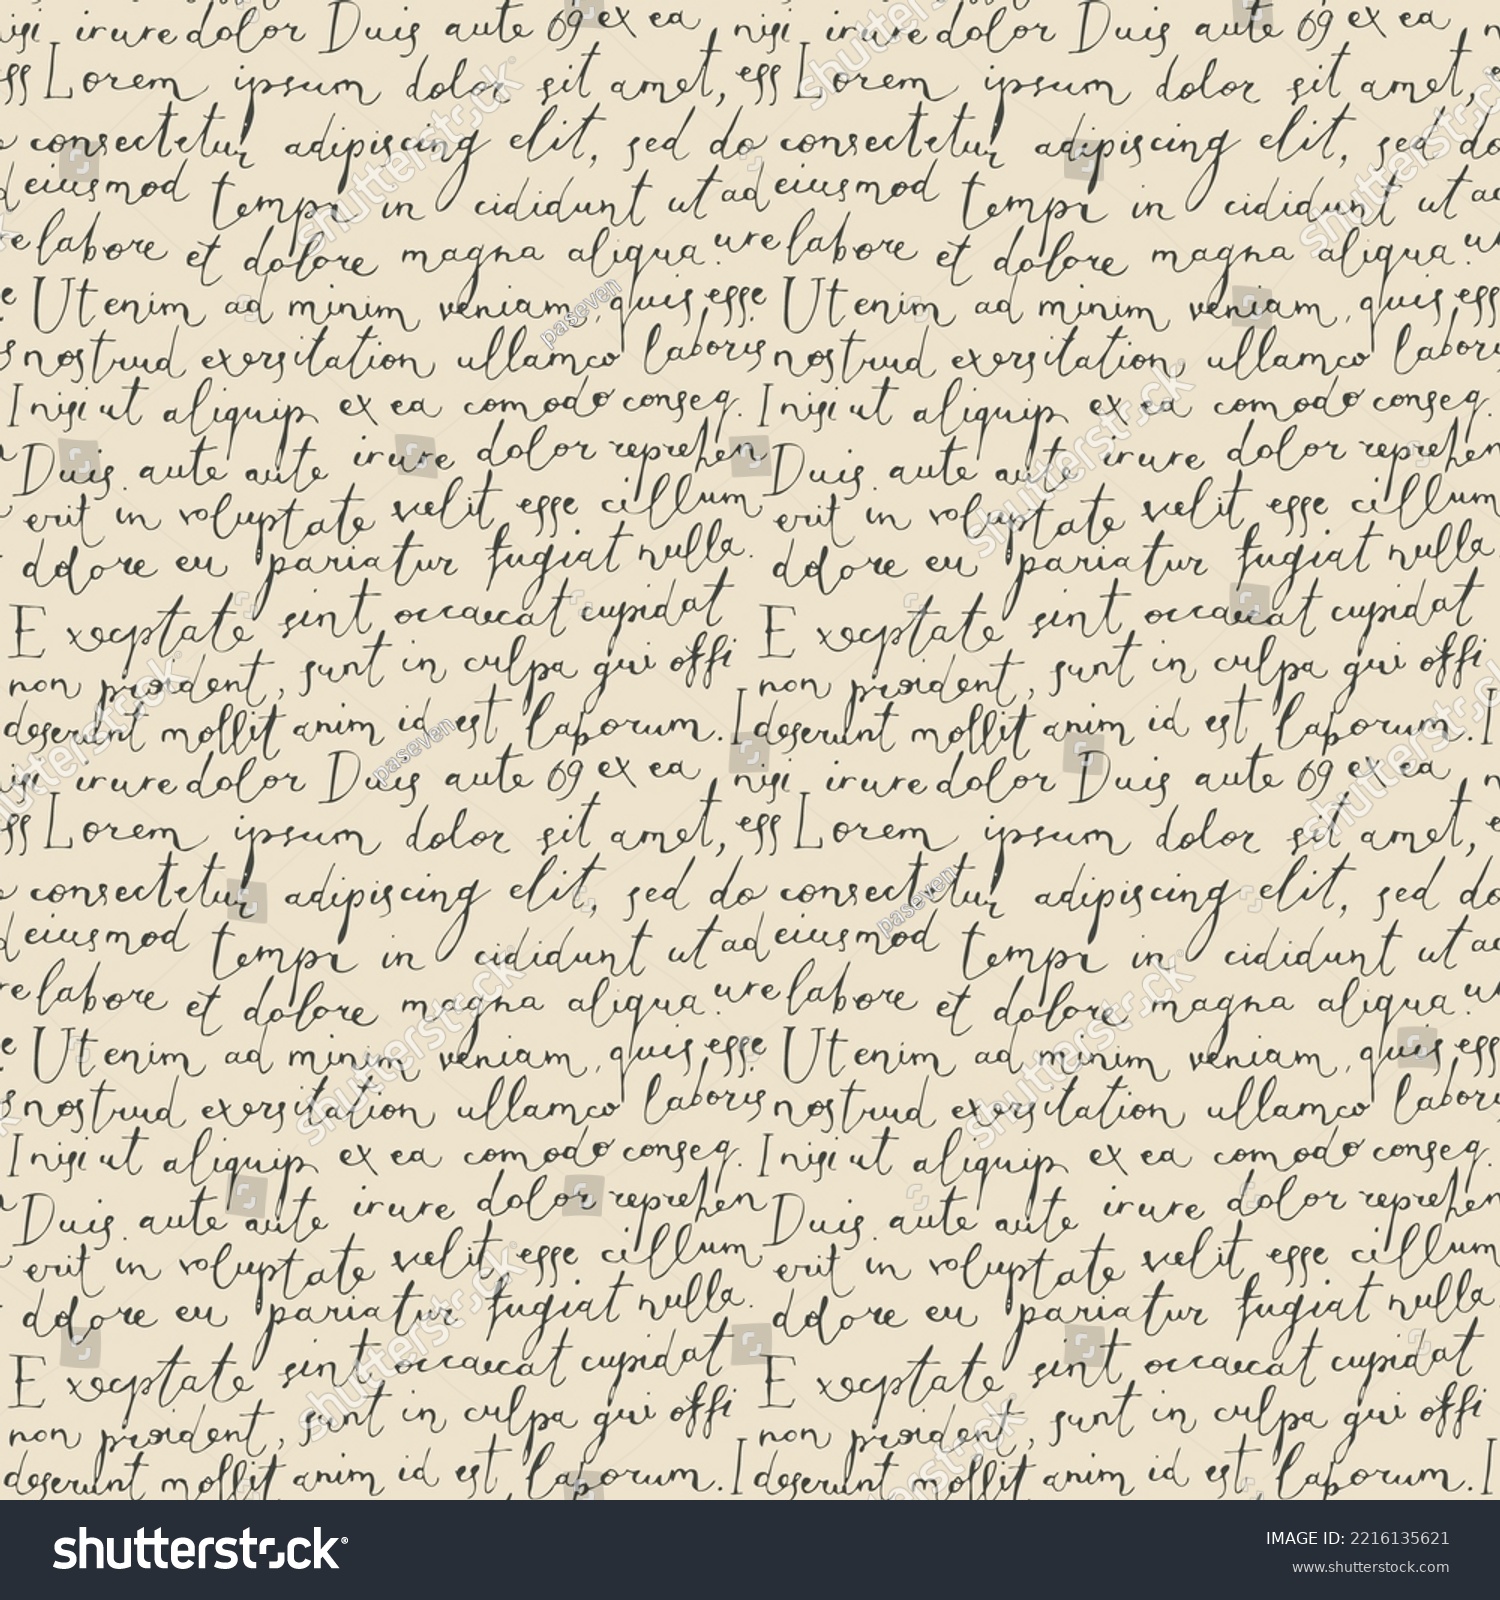 nisi irure dolor Duis aute 69 ex ea nisi irure dolor Duis aute 69 ex ea
ess Lorem ipsum dolor sit amet, ess Lorem ipsum dolor sit amet,
consectetur adipiscing elit, sed do consectetur adipiscing elit, sed do
eiusmod tempr in cididunt ut ad eiusmod tempr in cididunt ut ad
ure labore et dolore magna aliqua. ure labore et dolore magna aliqua.
Ut enim ad minim veniam, quis esse Ut enim ad minim veniam, quis esse
nostrud exersitation ullamco laboris nostrud exersitation ullamco laboris
I nisi ut aliquip ex ea comodo conseq. I nisi ut aliquip ex ea comodo conseq.
Duis aute aute irure dolor reprehen Duis aute aute irure dolor reprehen
erit in voluptate velit esse cillum erit in voluptate velit esse cillum
ddore eu pariatur fugiat nulla. ddore eu pariatur fugiat nulla.
E xecptate sint occaecat cupidat E xecptate sint occaecat cupidat
non proident, sunt in culpa qui offi non proident, sunt in culpa qui offi
deserunt mollit anim id est laborum. I deserunt mollit anim id est laborum. I
nisi irure dolor Duis aute 69 ex ea nisi irure dolor Duis aute 69 ex ea
ess Lorem ipsum dolor sit amet, ess Lorem ipsum dolor sit amet,
consectetur adipiscing elit, sed do consectetur adipiscing elit, sed do
eiusmod tempr in cididunt ut ad eiusmod tempr in cididunt ut ad
ure labore et dolore magna aliqua. ure labore et dolore magna aliqua.
Ut enim ad minim veniam, quis esse Ut enim ad minim veniam, quis esse
nostrud exersitation ullamco laboris nostrud exersitation ullamco laboris
I nisi ut aliquip ex ea comodo conseq. I nisi ut aliquip ex ea comodo conseq.
Duis aute aute irure dolor reprehen Duis aute aute irure dolor reprehen
erit in voluptate velit esse cillum erit in voluptate velit esse cillum
ddore eu pariatur fugiat nulla. ddore eu pariatur fugiat nulla.
E xecptate sint occaecat cupidat E xecptate sint occaecat cupidat
non proident, sunt in culpa qui offi non proident, sunt in culpa qui offi
deserunt mollit anim id est laborum. I deserunt mollit anim id est laborum. I
shutterstock
IMAGE ID: 2216135621
www.shutterstock.com